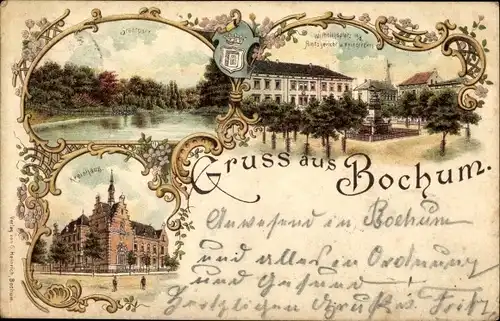 Stadtpark
Wilhelmsplatz m.
Amtsgericht u. Kriegerdenk.
Kreishaus
Gruss aus Bochum.
Anwesend in Bochum
und alles in Ordnung
und Gesund
Herzlichen Gruß Fritz
Verlag von Heinrich Bochum.